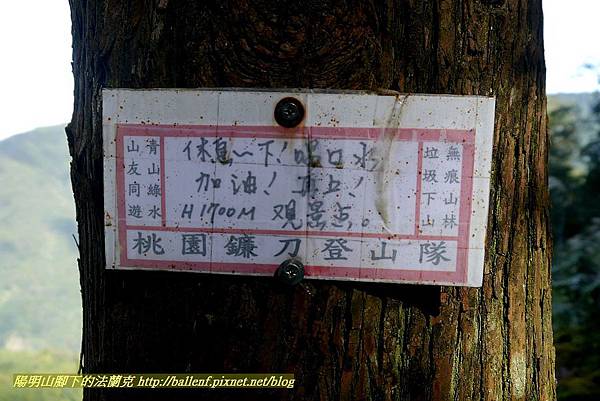 無痕山林
垃圾下山
休息一下!喝口水
加油! 上!
H1700M 观景点。
青山綠水
山友同遊
桃園鐮刀登山隊
陽明山腳下的法蘭克 http://ballenf.pixnet.net/blog